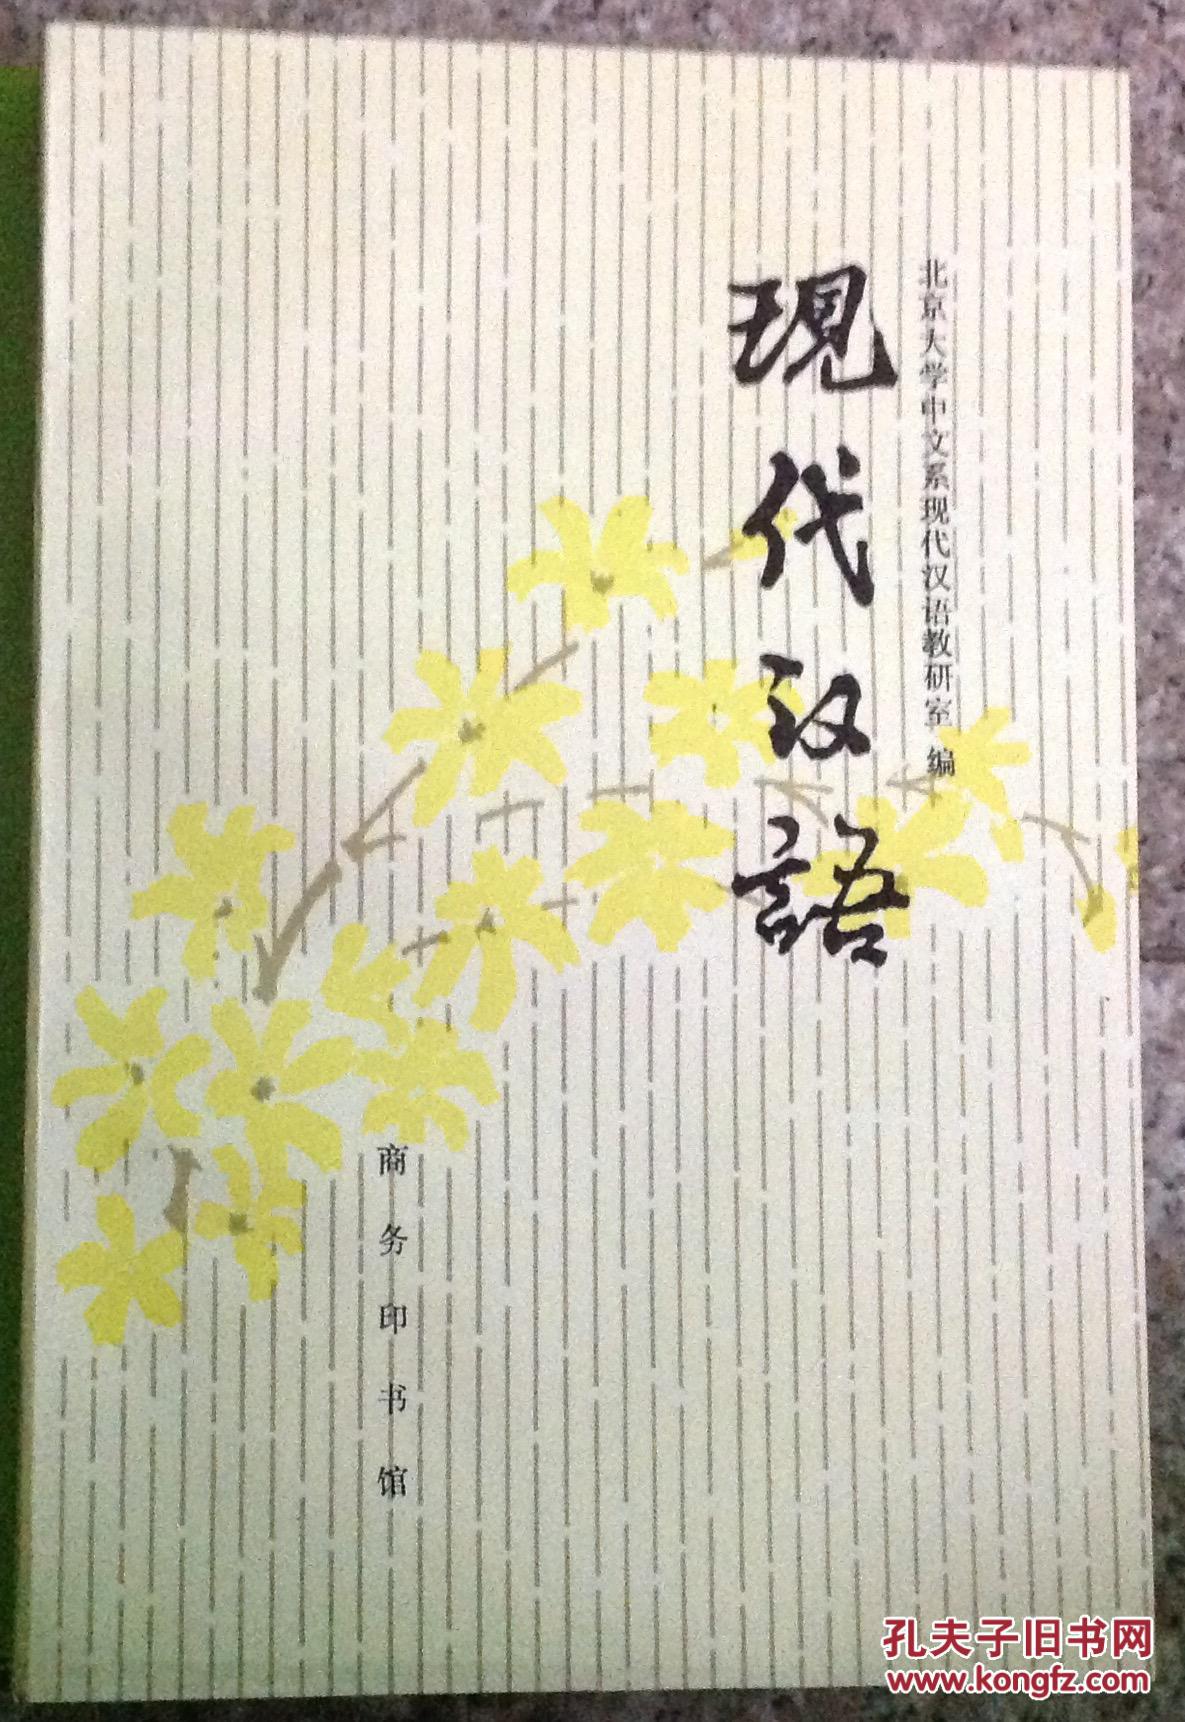 北京大学中文系现代汉语教研室 编
现代汉語
商务印书馆
孔夫子旧书网
www.kongfz.com